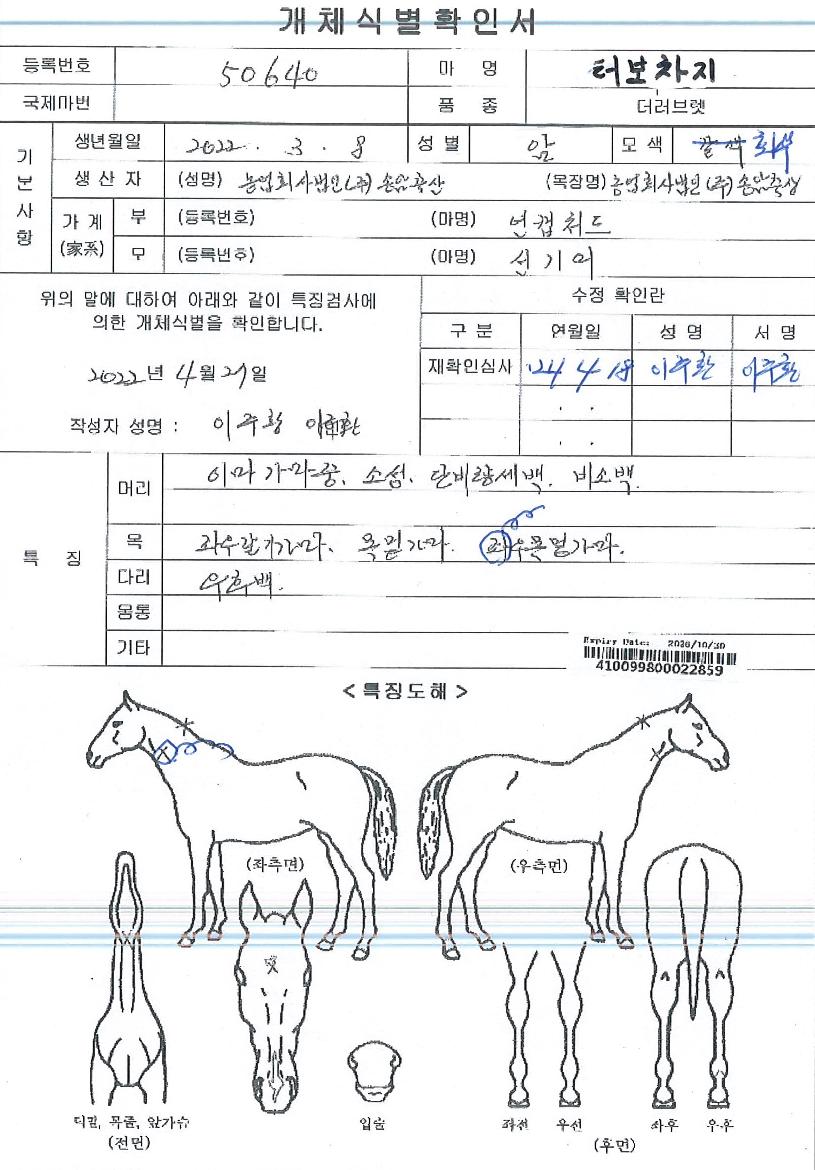 개체식별확인서
등록번호 50640 마 명 터보차지
국제마번 품 종 더러브렛
기본사항 생년월일 2022. 3. 8 성별 암 모색 갈색 회색
생산자 (성명) 농업회사법인(주) 손암축산 (목장명) 농업회사법인(주)손암축산
가계 (家系) 부 (등록번호) (마명) 언캡쳐드
모 (등록번호) (마명) 선기어
위의 말에 대하여 아래와 같이 특징검사에
의한 개체식별을 확인합니다.
2022년 4월 29일
작성자 성명 : 이주환 이주환
수정 확인란
구 분 연월일 성 명 서 명
재확인심사 '24 4 18 이주환 이주환
. .
. .
특 징
머리 이마 가마중, 소성, 단비량세백, 비소백.
목 좌우갈기가마, 목밑가마. 좌우목멱가마.
다리 우후백.
몸통
기타
Expiry Date: 2026/10/30
410099800022859
< 특징도해 >
(좌측면) (우측면)
턱밑, 목줄, 앞가슴
(전면)
입술
좌전 우전 좌후 우후
(후면)